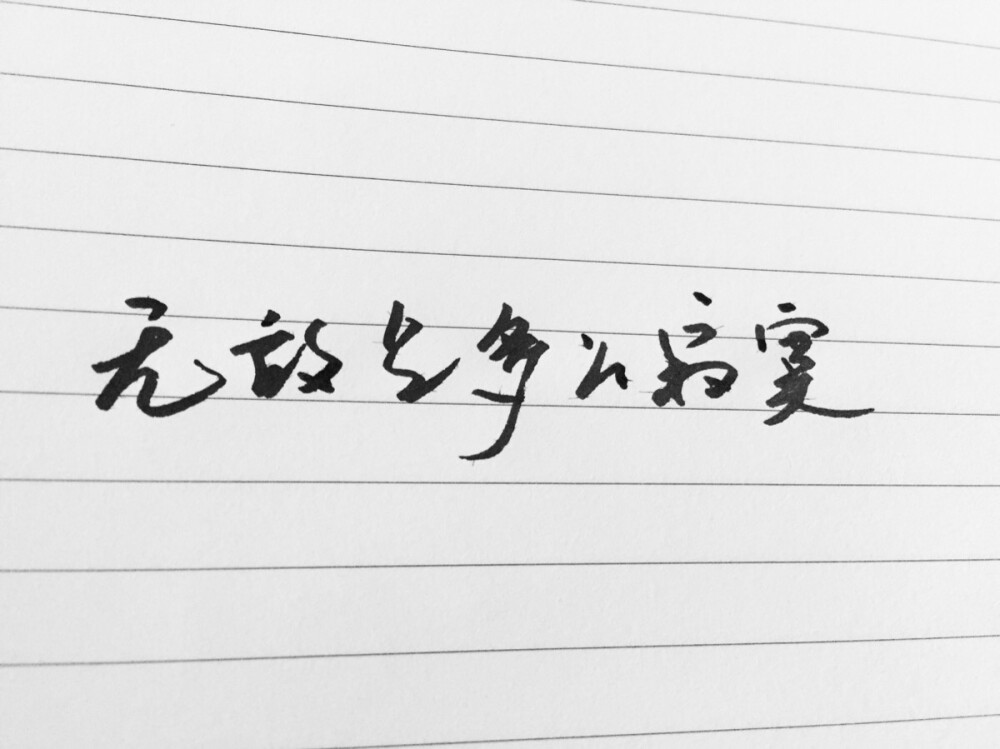 无敌是多么寂寞